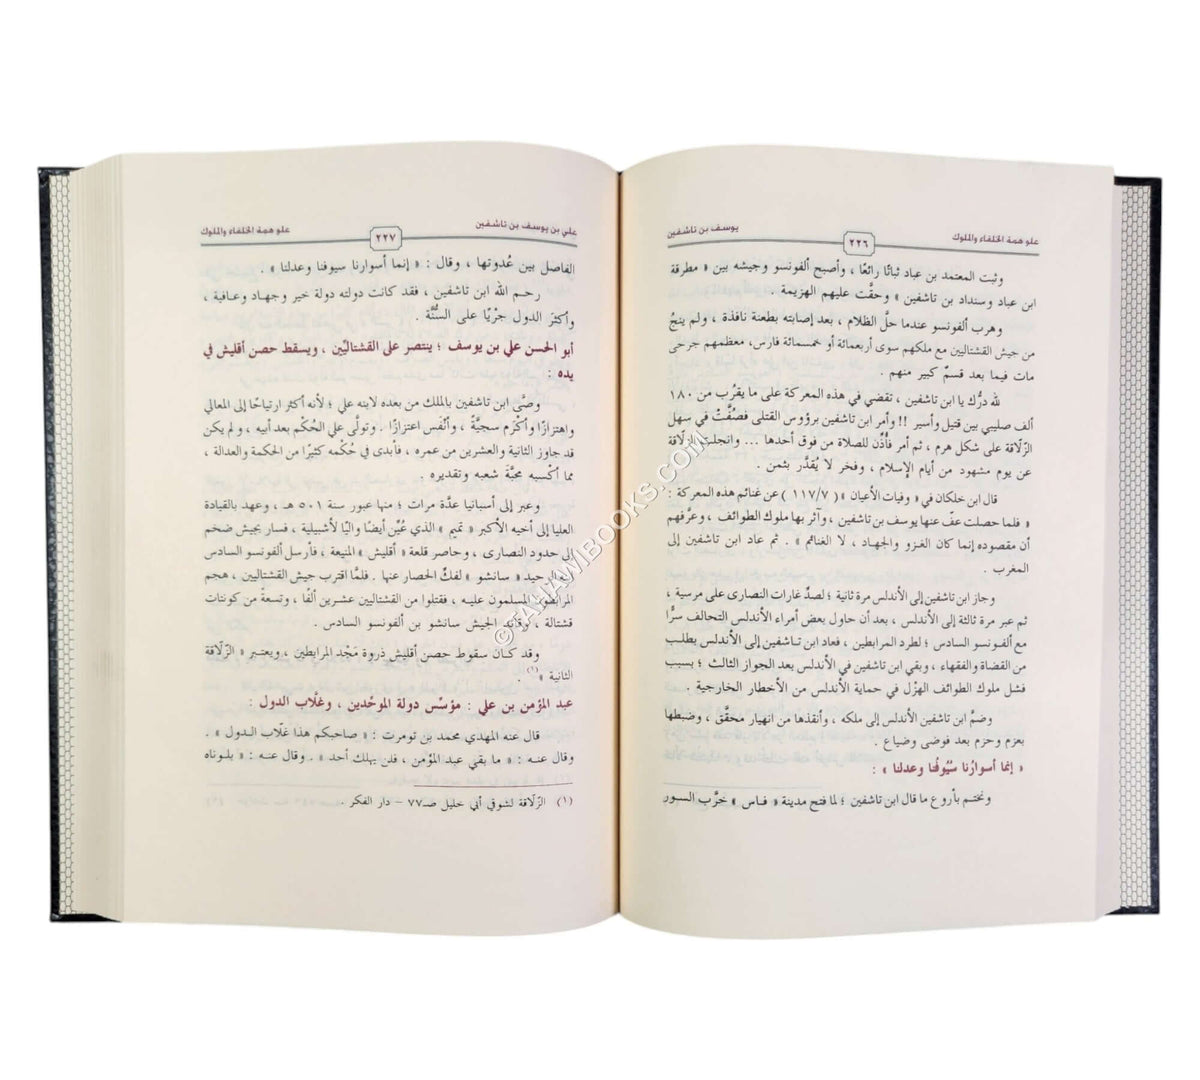 علو همة الخلفاء والملوك
٢٢٦
يوسف بن تاشفين
وثبت المعتمد بن عباد ثباتًا رائعًا ، وأصبح ألفونسو وجيشه بين « مطرقة
ابن عباد وسندان بن تاشفين » وحقَّت عليهم الهزيمة .
وهرب ألفونسو عندما حلَّ الظلام ، بعد إصابته بطعنة نافذة ، ولم ينجُ
من جيش القشتاليين مع ملكهم سوى أربعمائة أو خمسمائة فارس، معظمهم جرحى
مات فيما بعد قسمٌ كبير منهم .
لله درُّك يا ابن تاشفين، تقضي في هذه المعركة على ما يقرُب من ١٨٠
ألف صليبي بين قتيل وأسير !! وأمر ابن تاشفين برؤوس القتلى فصُفَّتْ في سهل
الزّلّاقة على شكل هرم ، ثم أمر فأُذِّن للصلاة من فوق أحدها ... وانجلت الزّلّاقة
عن يوم مشهود من أيام الإسلام ، وفخر لا يُقدَّر بثمن .
قال ابن خلكان في « وفيات الأعيان » ( ١١٧/٧ ) عن غنائم هذه المعركة :
« فلما حصلت عفّ عنها يوسف بن تاشفين ، وآثر بها ملوك الطوائف ، وعرَّفهم
أن مقصوده إنما كان الغزو والجهاد ، لا الغنائم » . ثم عاد ابن تاشفين إلى
المغرب .
وجاز ابن تاشفين إلى الأندلس مرة ثانية ؛ لصدِّ غارات النصارى على مرسية ،
ثم عبر مرة ثالثة إلى الأندلس ، بعد أن حاول بعض أمراء الأندلس التحالف سرًّا
مع ألفونسو السادس ؛ لطرد المرابطين ، فعاد ابن تاشفين إلى الأندلس بطلب
من القضاة والفقهاء ، وبقي ابن تاشفين في الأندلس بعد الجواز الثالث ؛ بسبب
فشل ملوك الطوائف الهزْل في حماية الأندلس من الأخطار الخارجية .
وضمَّ ابن تاشفين الأندلس إلى ملكه ، وأنقذها من انهيار محقَّق ، وضبطها
بعزم وحزم بعد فوضى وضياع .
« إنما أسوارنا سُيُوفُنا وعدلنا » :
ونختم بأروع ما قال ابن تاشفين ؛ لما فتح مدينة « فاس » خرَّب السور
علي بن يوسف بن تاشفين
٢٢٧
علو همة الخلفاء والملوك
الفاصل بين عُدوتها ، وقال : « إنما أسوارنا سيوفنا وعدلنا » .
رحم الله ابن تاشفين ، فقد كانت دولته دولة خير وجهاد وعافية ،
وأكثرَ الدول جرْيًا على السُّنَّة .
أبو الحسن علي بن يوسف ؛ ينتصر على القشتاليّين ، ويسقط حصن أقليش في
يده :
وصَّى ابن تاشفين بالملك من بعده لابنه علي ؛ لأنه أكثر ارتياحًا إلى المعالي
واهتزازًا وأكْرَم سجيَّةً ، وأنْفس اعتزازًا . وتولَّى علي الحُكم بعد أبيه ، ولم يكن
قد جاوز الثانية والعشرين من عمره ، فأبدى في حُكْمه كثيرًا من الحكمة والعدالة ،
مما أكْسبه محبَّة شعبه وتقديره .
وعبر إلى أسبانيا عدَّة مرات ؛ منها عبور سنة ٥٠١ هـ ، وعهد بالقيادة
العليا إلى أخيه الأكبر « تميم » الذي عُيِّن أيضًا واليًا لأشبيلية ، فسار بجيش ضخم
إلى حدود النصارى ، وحاصر قلعة « أقليش » المنيعة ، فأرسل ألفونسو السادس
وحيد « سانشو » لفكِّ الحصار عنها . فلمَّا اقترب جيش القشتاليين ، هجم
المرابطون المسلمون عليه ، فقتلوا من القشتاليين عشرين ألفًا ، وتسعةً من كونتات
قشتالة ، وقائد الجيش سانشو بن ألفونسو السادس .
وقد كان سقوط حصن أقليش ذروة مَجْد المرابطين ، ويعتبر « الزّلّاقة
الثانية » .
عبد المؤمن بن علي : مؤسِّس دولة الموحِّدين ، وغلَّاب الدول :
قال عنه المهدي محمد بن تومرت : « صاحبكم هذا غلّاب الدول » .
وقال عنه : « ما بقي عبد المؤمن ، فلن يهلك أحد » . وقال عنه : « بلوناه
(١) الزّلّاقة لشوقي أبي خليل صـ٧٧ - دار الفكر .
© TAHAWIBOOKS.COM